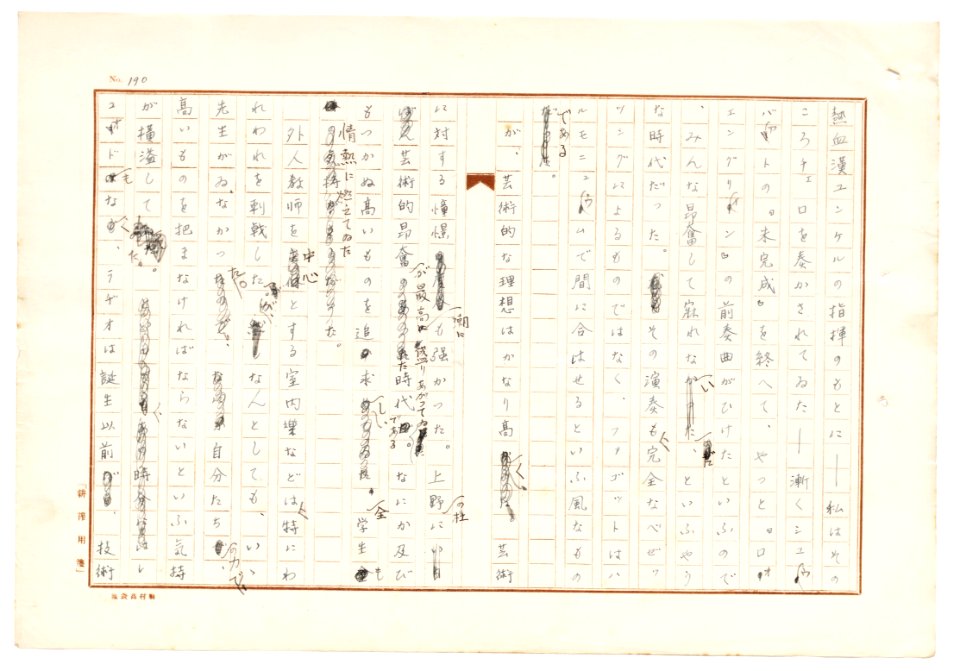 No. 190
熱血漢ユンケルの指揮のもとに——私はその
ころチェロを奏かされてゐた——漸くシユウ
バアトの"未完成"を終へて、やつと"ロオ
エングリイン"の前奏曲がひけたといふので
、みんな昂奮して寐れないといふやう
な時代だつた。その演奏も完全なベゼツ
ツングによるものではなく、フアゴツトはハ
ルモニユウムで間に合はせるといふ風なもの
である。
が、芸術的な理想はかなり高く、芸術
に対する憧憬も強かつた。上野に
芸術的昂奮が最高潮に盛りあがつて時代である。なにか及び
もつかぬ高いものを追求し、学生も
情熱に燃えてゐた。
外人教師を中心とする室内楽などは特にわ
れわれを刺戟した。なんとしても、いゝ
先生がゐなかつた。自分たちの力で、
高いものを把まなければならないといふ気持
が横溢してた。
コオドもなく、ラヂオは誕生以前、技術